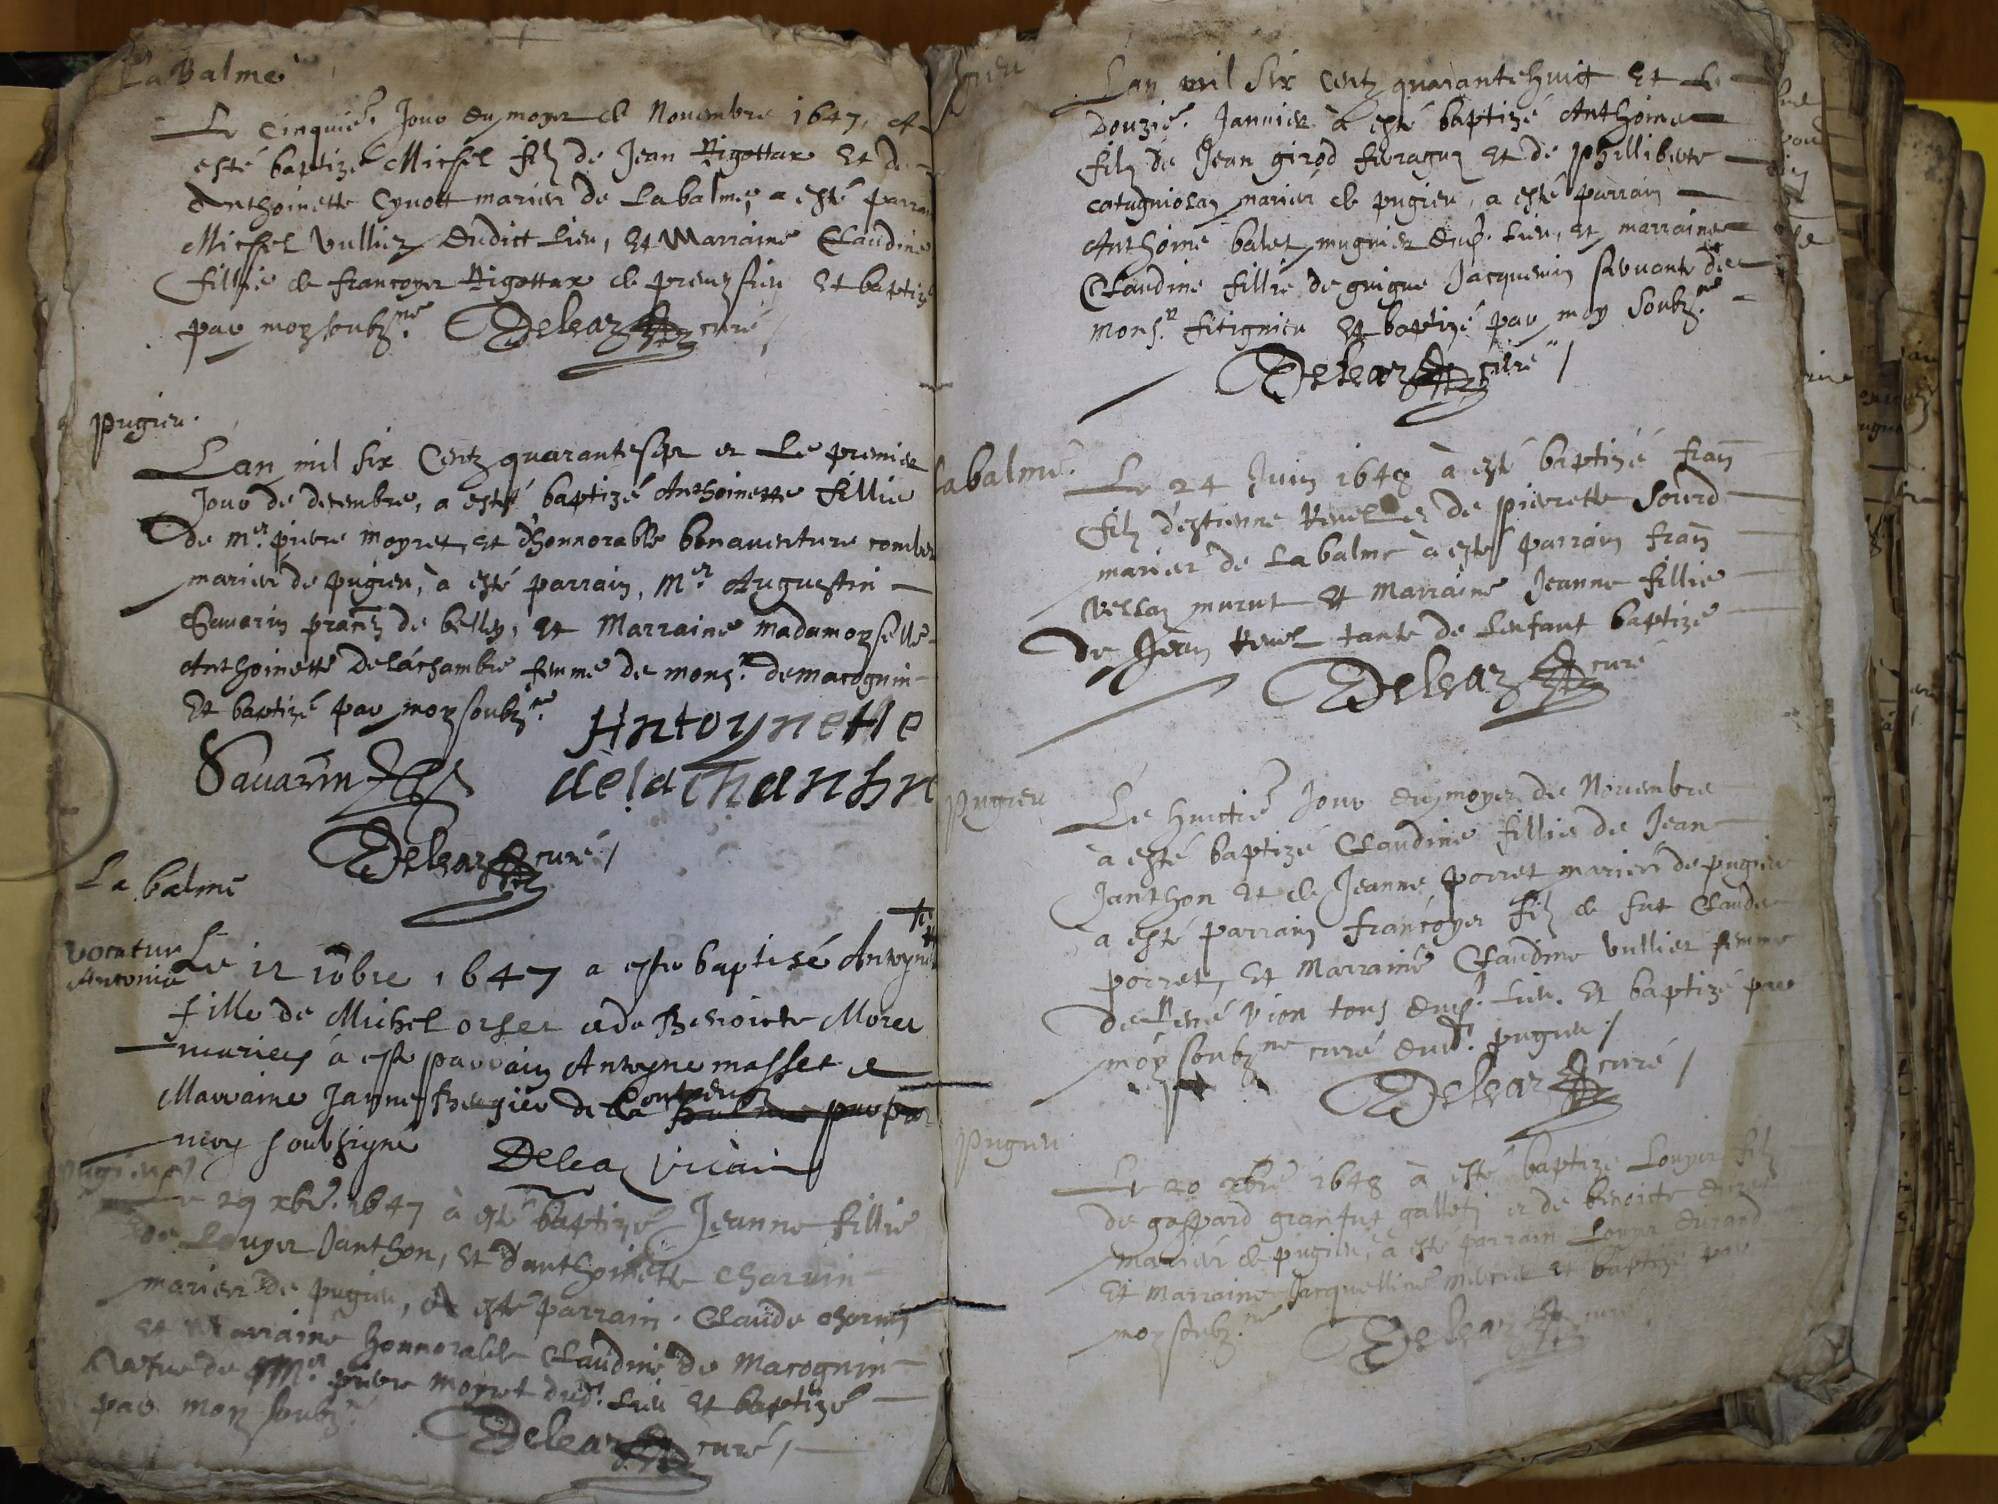 La Balme
Le cinquie. Jour du moys de Novembre 1647, A
esté baptizé Michel filz de Jean Rigottax Et de
Anthoinette Cynott mariéz de Labalme, a esté parrain
Michel Vulliez dudict Lieu, Et Marraine Claudine
fillie de francoys Rigottax de
Et baptizé
par moy soubz.né Deleaz curé
pugieu.
Lan mil six Centz quarante sept et Le premier
Jour de decembre, a esté baptizé Anthoinette fillie
De m.e pierre moyret, et d'honnorable bonaventure
mariéz de pugieu, à esté parrain, M.e Augustin
Savarin de belley, Et Marraine madamoyselle
Anthoinette Delachambre femme de mons.r demacognin
Et baptizé par moy soubz.né Antoynette
Savarin delachanbr
Deleaz curé
La balme
vocatur
Antonia
Le 12 10bre 1647 a este baptisé Antoyne
fille de Michel orset et de Benoicte Moret
mariez à este parrain Antoyne masset et
Marraine Janne Bergier de la par
moy soubsigné Deleaz vicain
pugieu
Le 29 xbre. 1647 à esté baptizé Jeanne fillie
de Louys Janthon, Et d'anthoinette charvin
mariéz de pugieu, a esté parrain. Claude charvin
Et Marraine honnorable Claudine de Macognin
vefve de M.e pierre Moyret dud.t Lieu Et baptizé
par moy soubz.né Deleaz curé
Lan mil six Centz quarantehuict Et Le
douzie. Janvier à esté baptizé Anthoine
filz de Jean girod et de philliberte
catugniolaz mariéz de pugieu, a esté parrain
Anthoine balet mugnier dud. Lieu, et marraine
Claudine fillie de guigue Jacquemin servante de
mons.r fitignieu Et baptizé par moy soubz.né
Deleaz curé
Labalme.
Le 24 Juin 1648 à esté baptizé fran
filz d'estienne Revel et de pierrette Sourd
mariéz de Labalme à esté parrain fran
vellaz murut Et Marraine Jeanne fillie
de Jean Revel tante de Lenfant baptizé
Deleaz curé
pugieu
Le huictie Jour du moys de Novembre
à esté baptizé Claudine fillie de Jean
Janthon et de Jeanne porret mariéz de pugieu
a esté parrain francoys filz de fut Claude
porret, Et Marraine Claudine vullier femme
de René vion tous dud.t Lieu. Et baptizé par
moy soubz.né curé dud.t pugieu
Deleaz curé
pugieu
Le 20 xbre 1648 à esté baptizé Louys filz
de gaspard granfut galleti et de benoicte
mariéz de pugieu, à esté parrain Louys durand
Et Marraine Jacquelline mercier Et baptizé par
moy soubz.né Deleaz curé